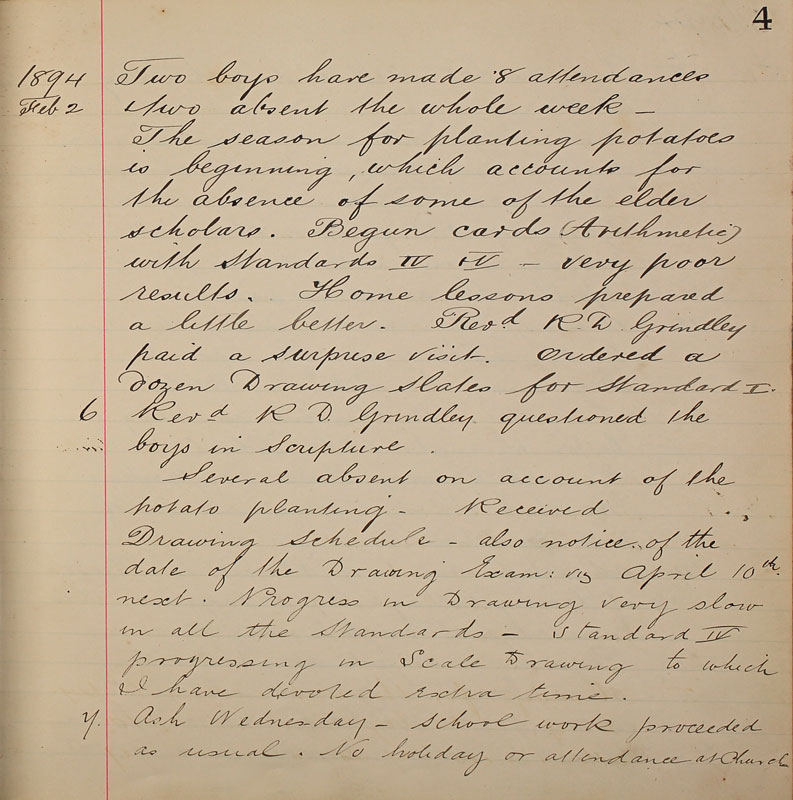 4
1894 Two boys have made 8 attendances
Feb 2 two absent the whole week –
The season for planting potatoes
is beginning, which accounts for
the absence of some of the elder
scholars. Begun cards (Arithmetic)
with Standards IV & V – very poor
results. Home lessons prepared
a little better. Revd R D Grindley
paid a surprise visit. Ordered a
dozen Drawing Slates for Standard I.
6 Revd R D. Grindley questioned the
boys in Scripture.
Several absent on account of the
potato planting – Received
Drawing Schedule – also notice of the
date of the Drawing Exam: viz April 10th
next. Progress in Drawing very slow
in all the Standards – Standard IV
progressing in Scale Drawing to which
I have devoted extra time.
7. Ash Wednesday – School work proceeded
as usual. No holiday or attendance at Church